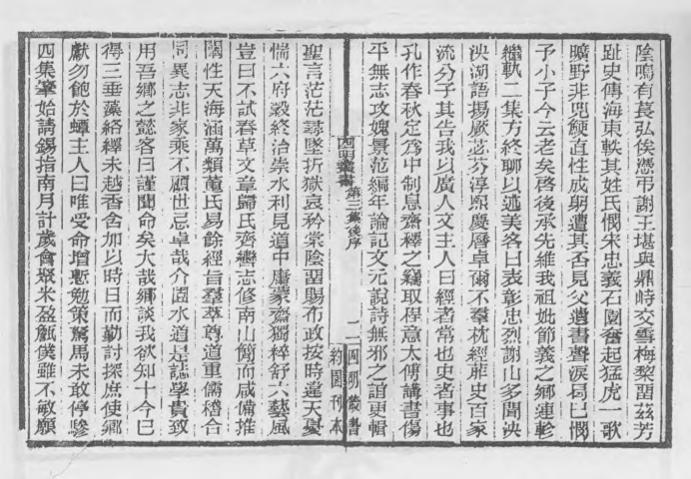 陰鳴有萇弘俟憑弔謝王堪與鼎峙交雪梅黎畱茲芳
趾史傳海東軼其姓氏憫宋忠義石園奮起猛虎一歌
曠野非兕
直性成朙遭其否見父遺書聲淚局巳憫
予小子今云老矣啓後承先維我祖妣節義之鄉連軫
繼軌二集方終聊以述美客曰表彰忠烈謝山多聞泱
泱湖語揚厥苾芬淳熙慶曆卓爾不羣枕經葄史百家
流分子其告我以廣人文主人曰經者常也史者事也
孔作春秋定爲中制息齋釋之竊取程意太傅講書傷
平無志攻媿景范編年論記文元說詩無邪之誼更輯
四明叢書 第三集後序 二 四明叢書 約園刊本
聖言茫茫尋墜折獄哀矜棠陰畱賜布政按時違天憂
惴六府穀終治崇水利見道中庸蒙齋獨粹舒六藝風
豈曰不試春草文章歸氏齊轡志修南山簡而咸備推
闡性天海涵萬類董氏易餘經旨羣萃尊道重儒稽合
同異志非家乘不顧世忌卓哉介
水道是誌學貴致
用吾鄉之懿客曰謹聞命矣大哉鄉談我欲知十今巳
得三垂藻絡繹未越香含加以時日而勤討探庶使鄉
獻勿飽於蟫主人曰唯受命增慙勉策駑馬未敢停驂
四集肇始請錫指南月計歲會聚米盈甔僕雖不敏願